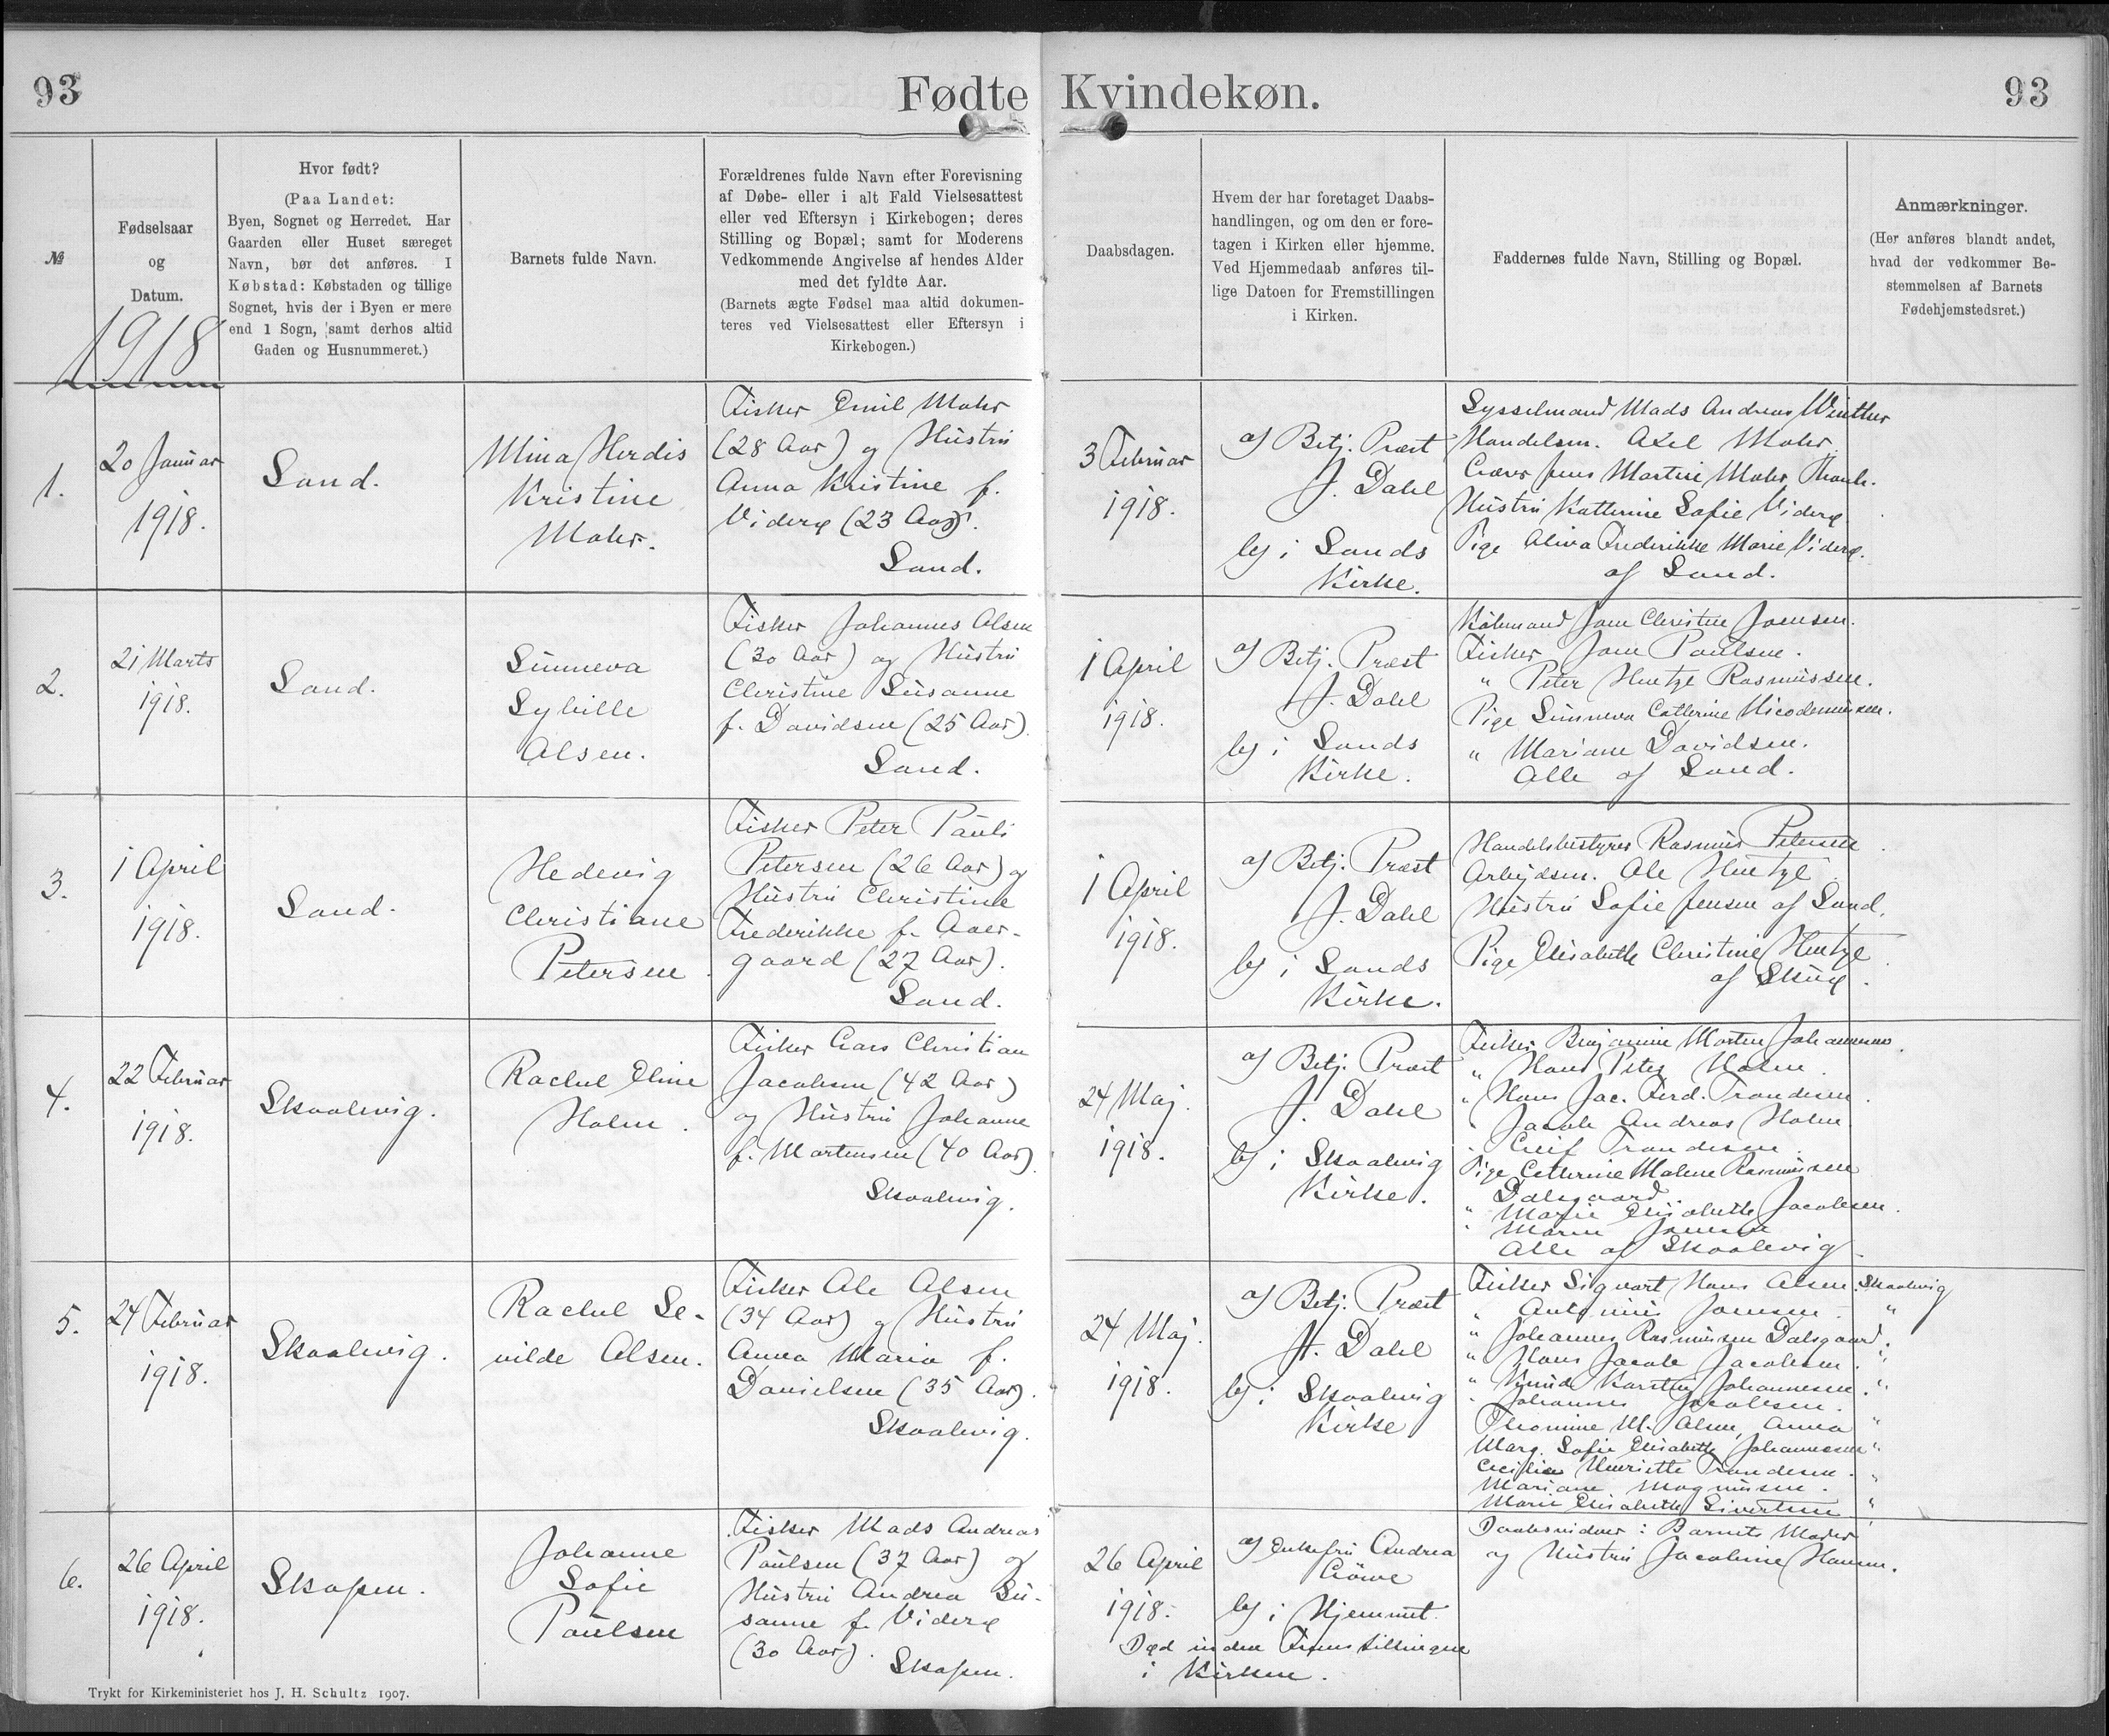 93
Fødte Kvindekøn.
93
№
Fødselsaar
og
Datum.
1918
Hvor født?
(Paa Landet:
Byen, Sognet og Herredet. Har
Gaarden eller Huset særeget
Navn, bør det anføres. I
Købstad: Købstaden og tillige
Sognet, hvis der i Byen er mere
end 1 Sogn, samt derhos altid
Gaden og Husnummeret.)
Barnets fulde Navn.
Forældrenes fulde Navn efter Forevisning
af Døbe- eller i alt Fald Vielsesattest
eller ved Eftersyn i Kirkebogen; deres
Stilling og Bopæl; samt for Moderens
Vedkommende Angivelse af hendes Alder
med det fyldte Aar.
(Barnets ægte Fødsel maa altid dokumen-
teres ved Vielsesattest eller Eftersyn i
Kirkebogen.)
Daabsdagen.
Hvem der har foretaget Daabs-
handlingen, og om den er fore-
tagen i Kirken eller hjemme.
Ved Hjemmedaab anføres til-
lige Datoen for Fremstillingen
i Kirken.
Faddernes fulde Navn, Stilling og Bopæl.
Anmærkninger.
(Her anføres blandt andet,
hvad der vedkommer Be-
stemmelsen af Barnets
Fødehjemstedsret.)
1.
20 Januar
1918.
Sand.
Mina Herdis
Kristine
Mohr.
Fisker Emil Mohr
(28 Aar) og Hustru
Anna Kristine f.
Viderø (23 Aar).
Sand.
3 Februar
1918.
af Betj. Præst
J. Dahl
by i Sands
Kirke.
Sysselmand Mads Andreas Winther
Handelsm. Axel Mohr
Jens Martin Mohr, Thorsh.
Hustru Katherine Sofie Viderø
Pige Oliva Frederikke Marie Viderø.
af Sand.
2.
21 Marts
1918.
Sand.
Sunneva
Sybille
Olsen.
Fisker Johannes Olsen
(30 Aar) og Hustru
Christine Susanne
f. Davidsen (25 Aar).
Sand.
1 April
1918.
af Betj. Præst
J. Dahl
by i Sands
Kirke.
Købmand Joen Christen Joensen.
Fisker Joen Poulsen.
" Peter Hentze Rasmussen.
Pige Sunneva Catherine Nicodemussen.
" Mariane Davidsen.
Alle af Sand.
3.
1 April
1918.
Sand.
Hedevig
Christiane
Petersen
Fisker Peter Pauli
Petersen (26 Aar) og
Hustru Christine
Frederikke f. Aaer-
gaard (27 Aar).
Sand.
1 April
1918.
af Betj. Præst
J. Dahl
by i Sands
Kirke.
Handelsbestyrer Rasmus Petersen
Arbejdsm. Ole Hentze
Hustru Sofie Jensen af Sand,
Pige Elisabeth Christine Hentze
af Skuø.
4.
22 Februar
1918.
Skaalevig.
Rachel Eline
Holm.
Fisker Lars Christian
Jacobsen (42 Aar)
og Hustru Johanne
f. Mortensen (40 Aar).
Skaalevig.
24 Maj.
1918.
af Betj. Præst
J. Dahl
by i Skaalevig
Kirke.
Fisker Benjamin Morten Johannesen.
" Hans Peter Holm.
" Hans Jac. Ferd. Trondesen.
Jacob Andreas Holm
Leif Trondesen
Pige Catherine Malene Rasmussen
Dalsgaard
" Marie Elisabeth Jacobsen.
" Maren Joensen
Alle af Skaalevig.
5.
24 Februar
1918.
Skaalevig.
Rachel Se-
vilde Olsen.
Fisker Ole Olsen
(34 Aar) og Hustru
Anna Maria f.
Danielsen (35 Aar).
Skaalevig.
24 Maj.
1918.
af Betj. Præst
J. Dahl
by i Skaalevig
Kirke
Fisker Sigvart Hans Olsen. Skaalevig
" Antonius Joensen "
" Johannes Rasmussen Dalsgaard. "
" Hans Jacob Jacobsen. "
" Karsten Johannesen. "
" Johannes Jacobsen.
Thomine M. Olsen, Anna "
Marg. Sofie Elisabeth Johannesen "
Cecilia Henriette Trondesen. "
Mariane Magnusen.
Marie Elisabeth Sivertsen "
6.
26 April
1918.
Skopen.
Johanne
Sofie
Poulsen
Fisker Mads Andreas
Poulsen (37 Aar) og
Hustru Andrea Su-
sanne f. Viderø
(30 Aar).
Skopen.
26 April
1918.
af Enkefru Andrea
by i Hjemmet.
Død inden Fremstillingen
i Kirken.
Daabsvidner: Barnets Moder
og Hustru Jacobine Hansen.
Trykt for Kirkeministeriet hos J. H. Schultz 1907.